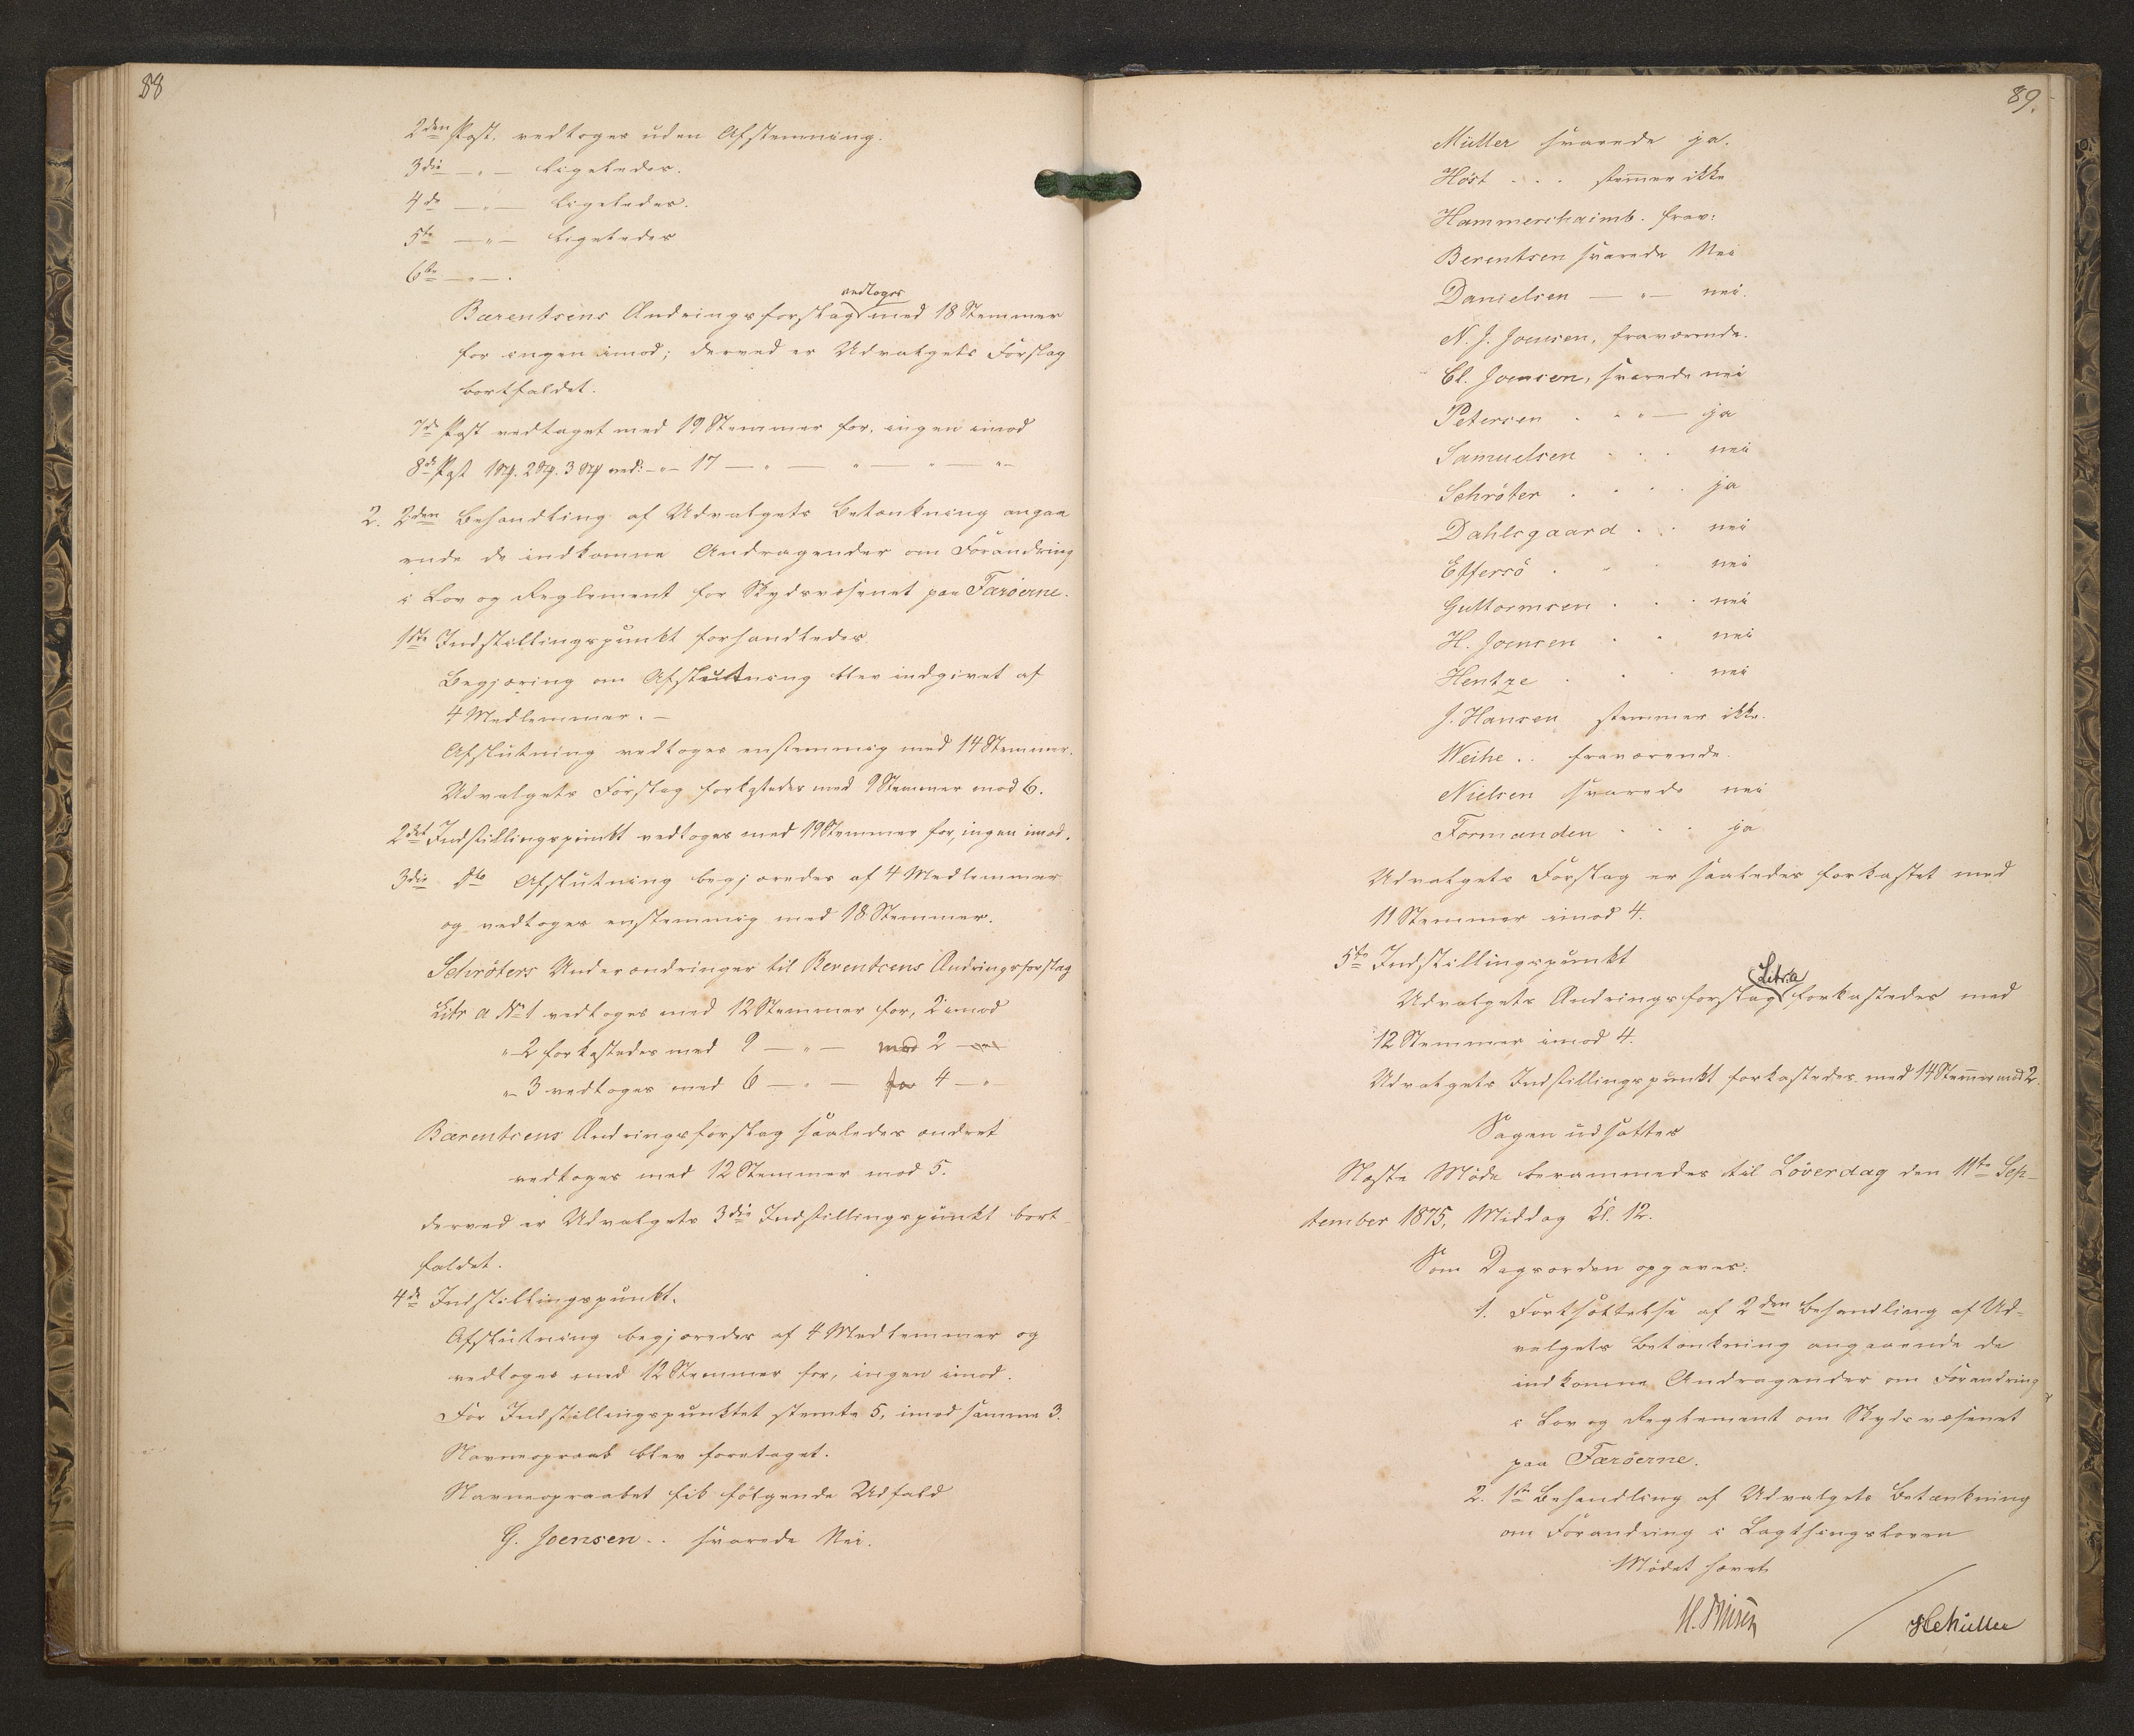 88
2den Post, vedtoges uden Afstemning.
3die — " — ligeledes.
4de — " — ligeledes.
5te — " — ligeledes
6te — " — .
vedtoges
Bærentsens Ændringsforslag med 18 Stemmer
for ingen imod; derved er Udvalgets Forslag
bortfaldet.
7de Post vedtaget med 19 Stemmer for, ingen imod
8de Post 1 Stp. 2 Stp. 3 Stp ved: — " — 17 — " — " — " — " —
2. 2den Behandling af Udvalgets Betænkning angaa
ende de indkomne Andragender om Forandring
i Lov og Reglement for Skydsvæsenet paa Færöerne.
1ste Indstillingspunkt forhandledes
Begjæring om Afslutning blev indgivet af
4 Medlemmer. —
Afslutning vedtoges enstemmig med 14 Stemmer.
Udvalgets Forslag forkastedes med 9 Stemmer mod 6.
2det Indstillingspunkt vedtoges med 19 Stemmer for, ingen imod.
3die do Afslutning begjæredes af 4 Medlemmer
og vedtoges enstemmig med 18 Stemmer.
Schröters Underændringer til Berentsens Ændringsforslag
Litr a No 1 vedtoges med 12 Stemmer for, 2 imod
" 2 forkastedes med 9 — " — mod 2 —
" 3 vedtoges med 6 — " — for 4 — "
Bærentsens Ændringsforslag saaledes ændret
vedtoges med 12 Stemmer mod 5.
derved er Udvalgets 3die Indstillingspunkt bort-
faldet.
4de Indstillingspunkt.
Afslutning begjæredes af 4 Medlemmer og
vedtoges med 12 Stemmer for, ingen imod.
For Indstillingspunktet stemte 5, imod samme 3.
Navneopraab blev foretaget.
Navneopraabet fik følgende Udfald
G. Joensen . . svarede Nei.
89.
Müller svarede ja.
Höst . . . stemmer ikke
Hammershaimb. frav:
Berentsen svarede Nei
Danielsen — " — nei.
N. J. Joensen, fraværende.
Cl. Joensen, svarede nei
Petersen . " " — ja
Samuelsen . . . nei
Schröter . . . . ja
Dahlsgaard . . nei
Effersö . " . nei
Guttormsen . . . nei
H. Joensen . . nei
Hentze . . . nei
J. Hansen stemmer ikke.
Weihe . . fraværende
Nielsen svarede nei
Formanden . . . ja
Udvalgets Forslag er saaledes forkastet med
11 Stemmer imod 4.
5te Indstillingspunkt
Litr a
Udvalgets Ændringsforslag forkastedes med
12 Stemmer imod 4.
Udvalgets Indstillingspunkt forkastedes med 14 Stemmer mod 2.
Sagen udsattes
Næste Møde berammedes til Löverdag den 11te Sep-
tember 1875, Middag Kl. 12.
Som Dagsorden opgaves:
1. Fortsættelse af 2den Behandling af Ud-
valgets Betænkning angaaende de
indkomne Andragender om Forandring
i Lov og Reglement om Skydsvæsenet
paa Færöerne.
2. 1ste Behandling af Udvalgets Betænkning
om Forandring i Lagthingsloven
Mödet hævet
HCMüller